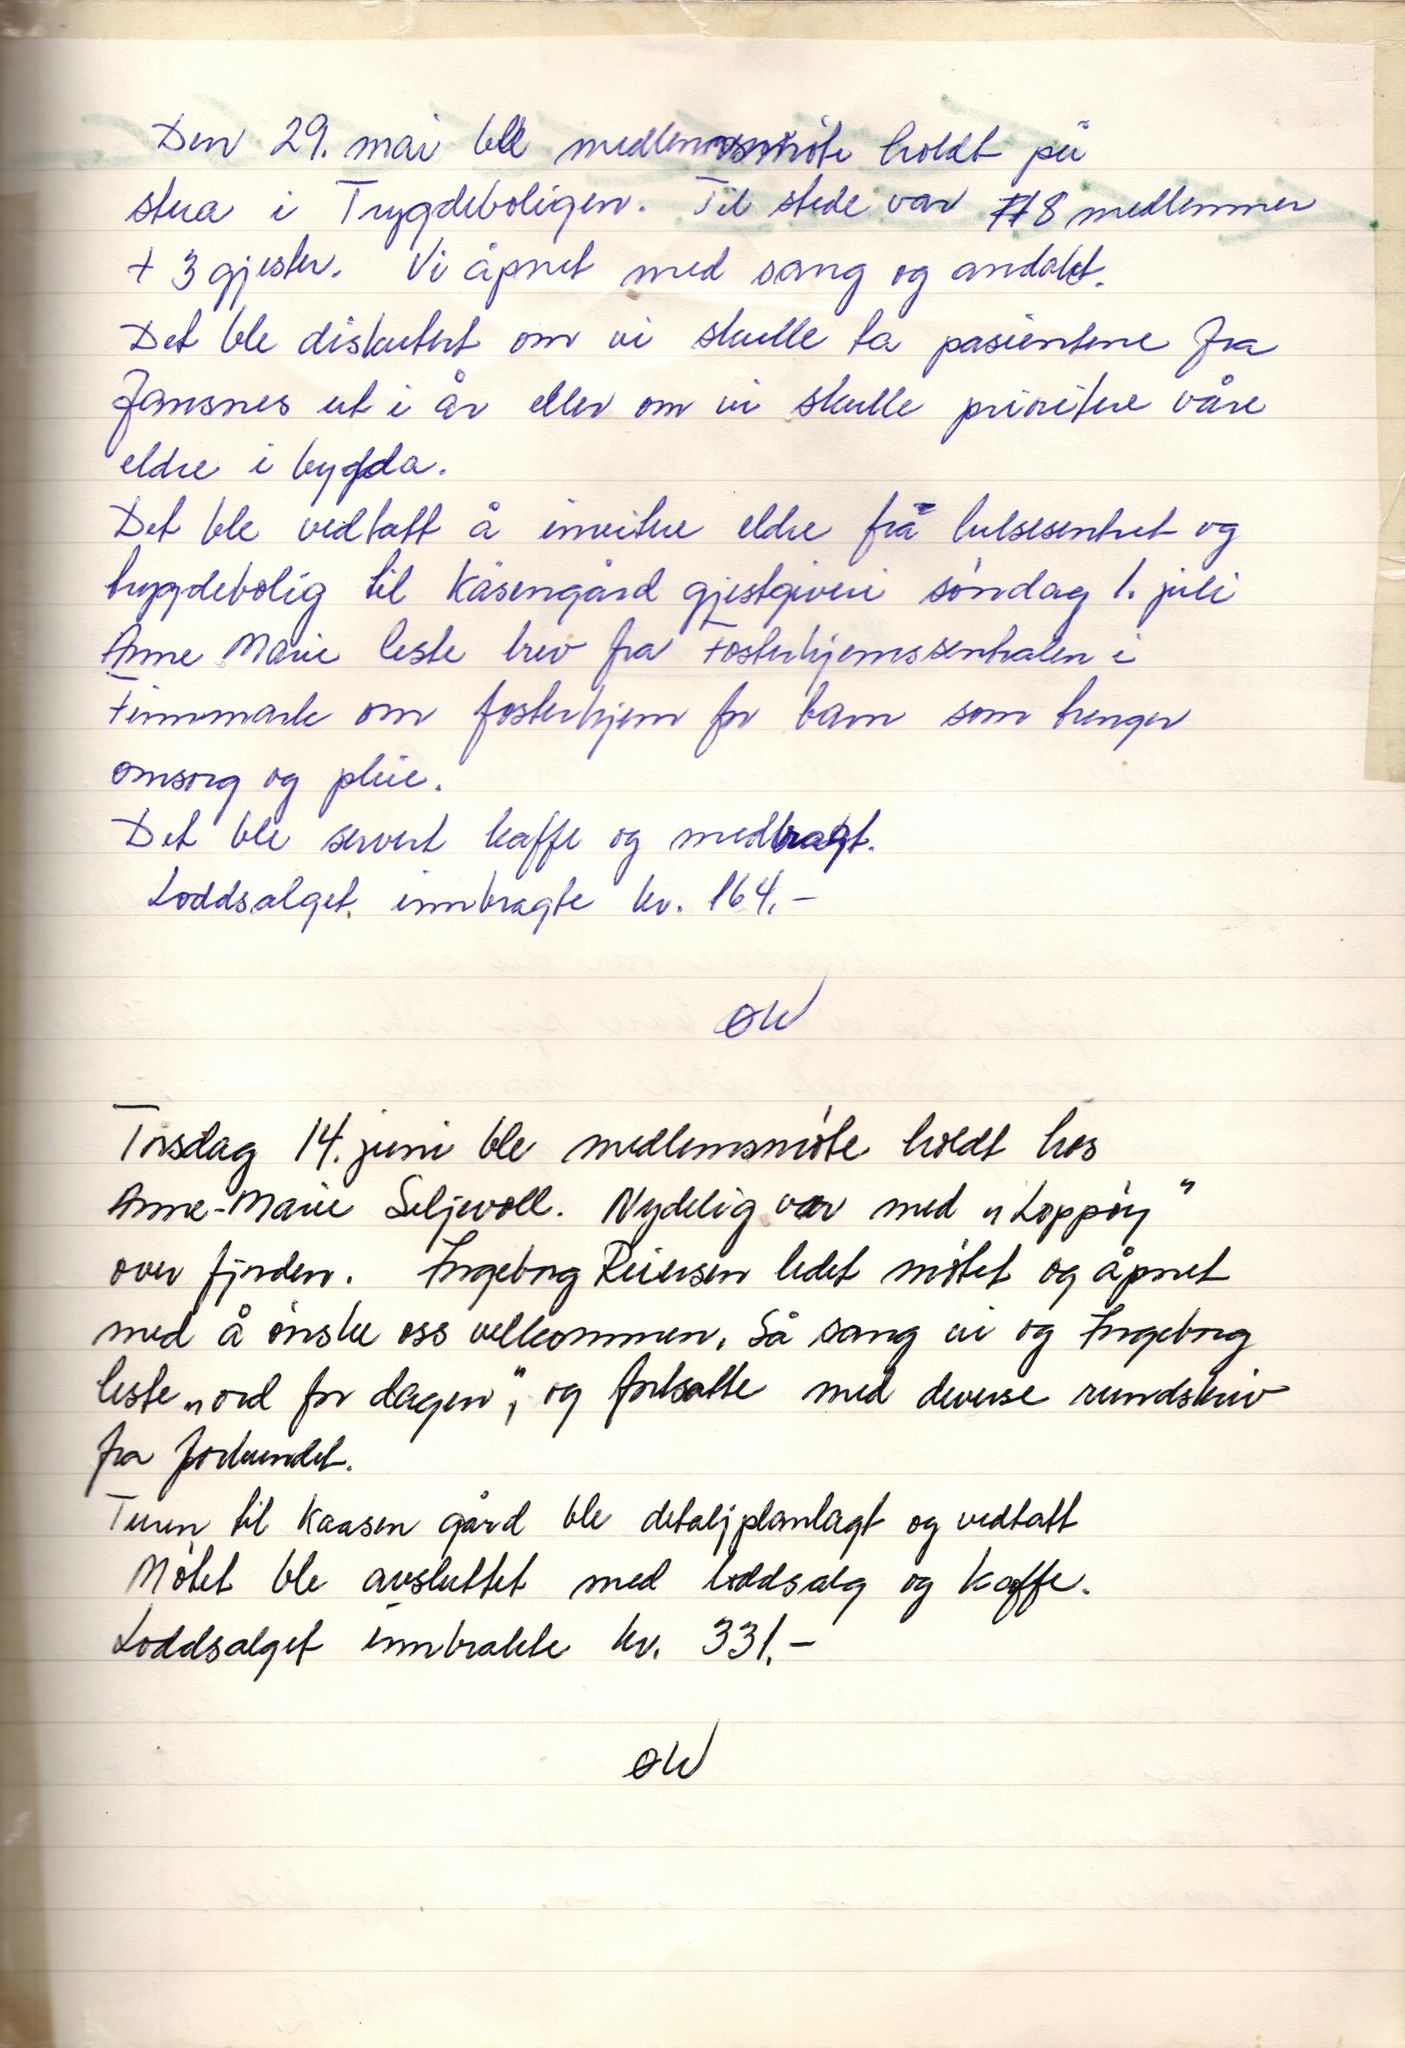 Den 29. mai ble medlemsmøte holdt på
stua i Trygdeboligen. Til stede var 8 medlemmer
+ 3 gjester. Vi åpnet med sang og andakt.
Det ble diskutert om vi skulle ta pasientene fra
Jansnes ut i år eller om vi skulle prioritere våre
eldre i bygda.
Det ble vedtatt å invitere eldre frå helsesentret og
trygdebolig til Kåsengård gjestgiveri søndag 1. juli
Anne Marie leste brev fra Fosterhjemssentralen i
Finnmark om fosterhjem for barn som trenger
omsorg og pleie.
Det ble servert kaffe og medbragt.
Loddsalget innbragte kr. 164.-
ØW
Torsdag 14. juni ble medlemsmøte holdt hos
Anne-Marie Seljevoll. Nydelig vær med „Loppøy"
over fjorden. Ingeborg Reiersen ledet møtet og åpnet
med å ønske oss velkommen. Så sang vi og Ingeborg
leste „ord for dagen", og fortsatte med deverse rundskriv
fra forbundet.
Turen til Kaasen gård ble detaljplanlagt og vedtatt
Møtet ble avsluttet med loddsalg og kaffe.
Loddsalget innbrakte kr. 331.-
ØW